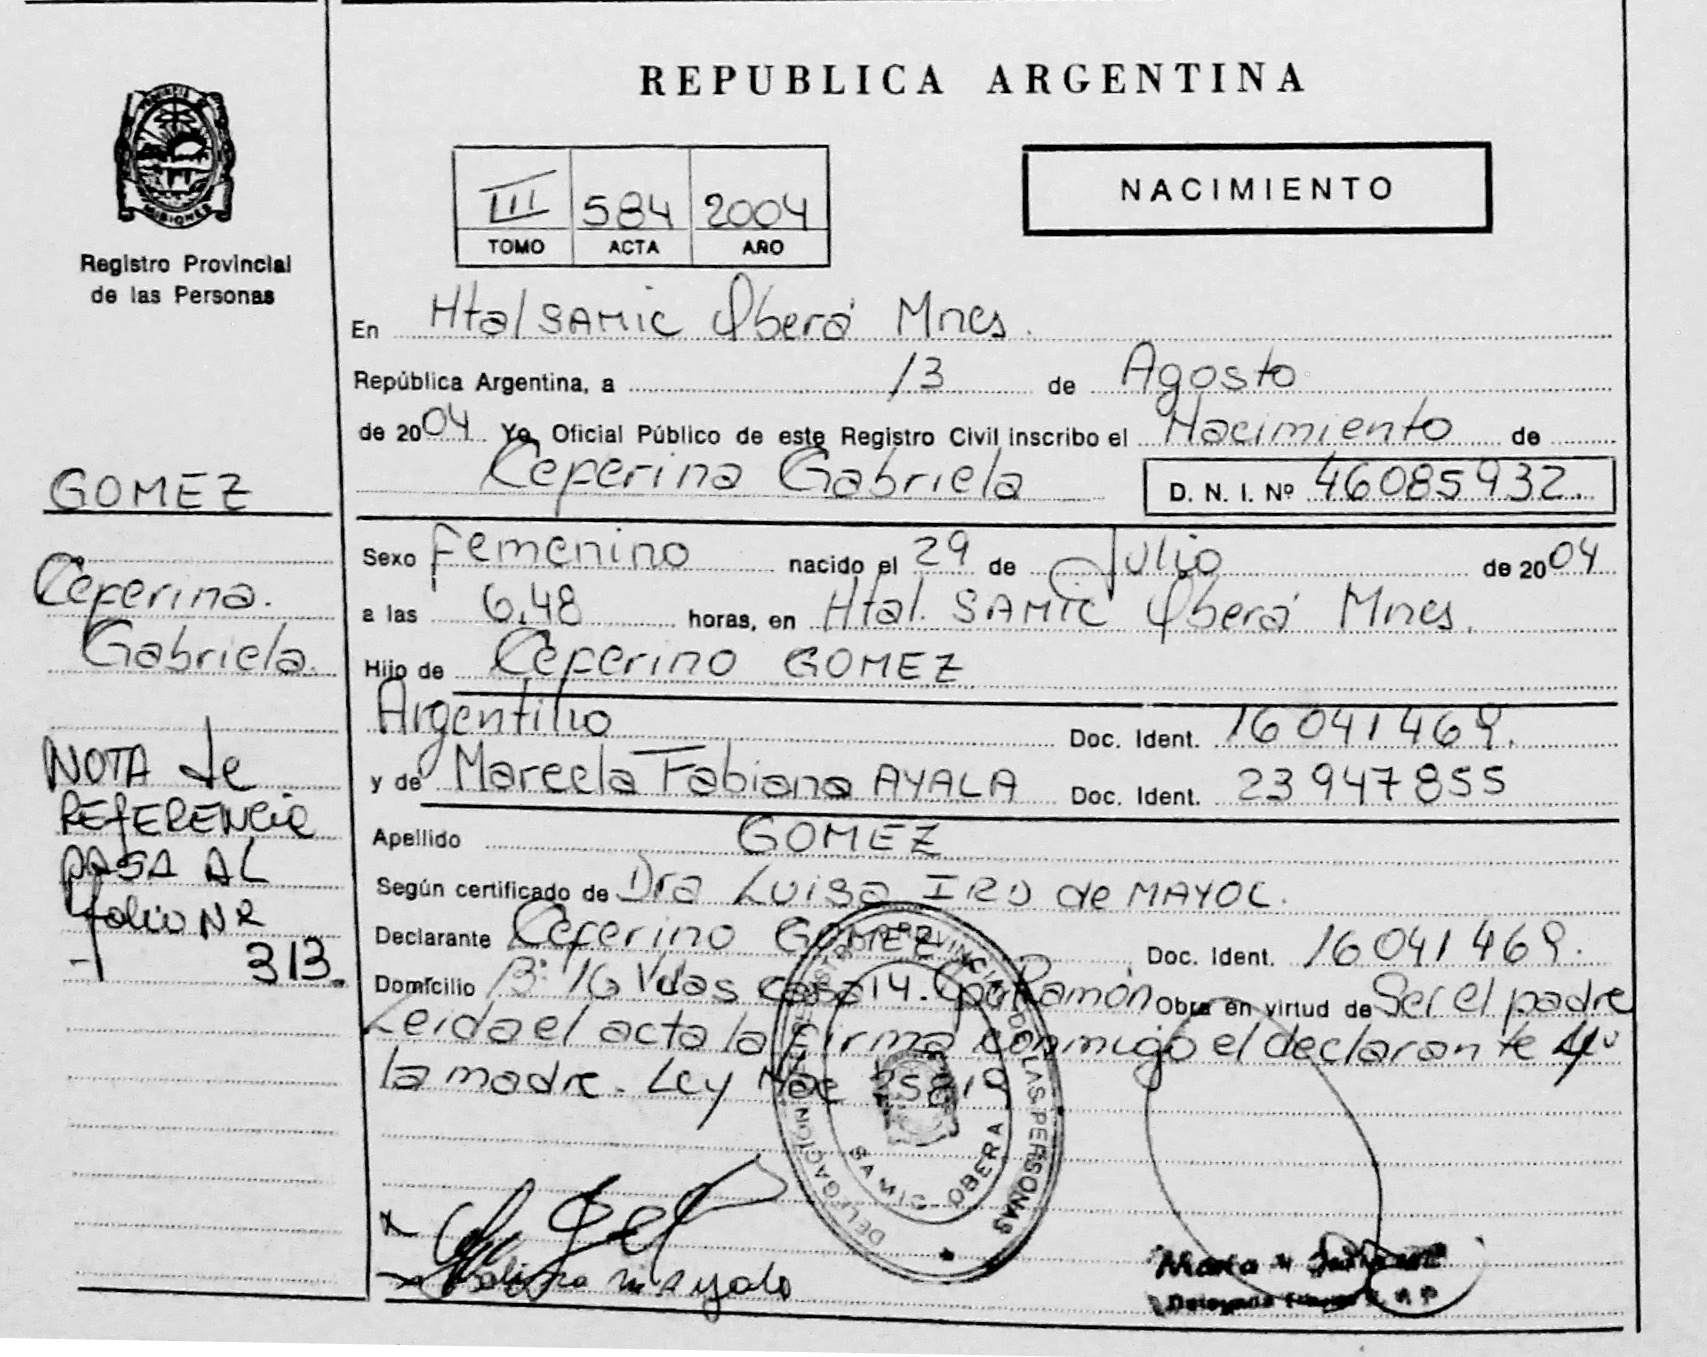 REPUBLICA ARGENTINA
PROVINCIA DE
MISIONES
Registro Provincial
de las Personas
III 584 2004
TOMO ACTA AÑO
NACIMIENTO
En Htal SAMIC Oberá Mnes.
República Argentina, a 13 de Agosto
de 2004 Yo, Oficial Público de este Registro Civil inscribo el Nacimiento de
Ceferina Gabriela D. N. I. Nº 46085932.
Sexo Femenino nacido el 29 de Julio de 2004
a las 6,48 horas, en Htal. SAMIC Oberá Mnes.
Hijo de Ceferino GOMEZ
Argentino Doc. Ident. 16041469.
y de Marcela Fabiana AYALA Doc. Ident. 23947855
Apellido GOMEZ
Según certificado de Dra Luisa IRO de MAYOL.
Declarante Ceferino GOMEZ Doc. Ident. 16041469.
Domicilio Bº 16 Vdas casa 14. Cpo Ramón Obra en virtud de Ser el padre
Leida el acta la firma conmigo el declarante y
la madre. Ley 25819
GOMEZ
Ceferina.
Gabriela.
NOTA de
REFERENCIA
PASA AL
folio NR
313.
REGISTRO PROVINCIAL DE LAS PERSONAS
DELEGACION
SAMIC OBERA
ayala
Delegada